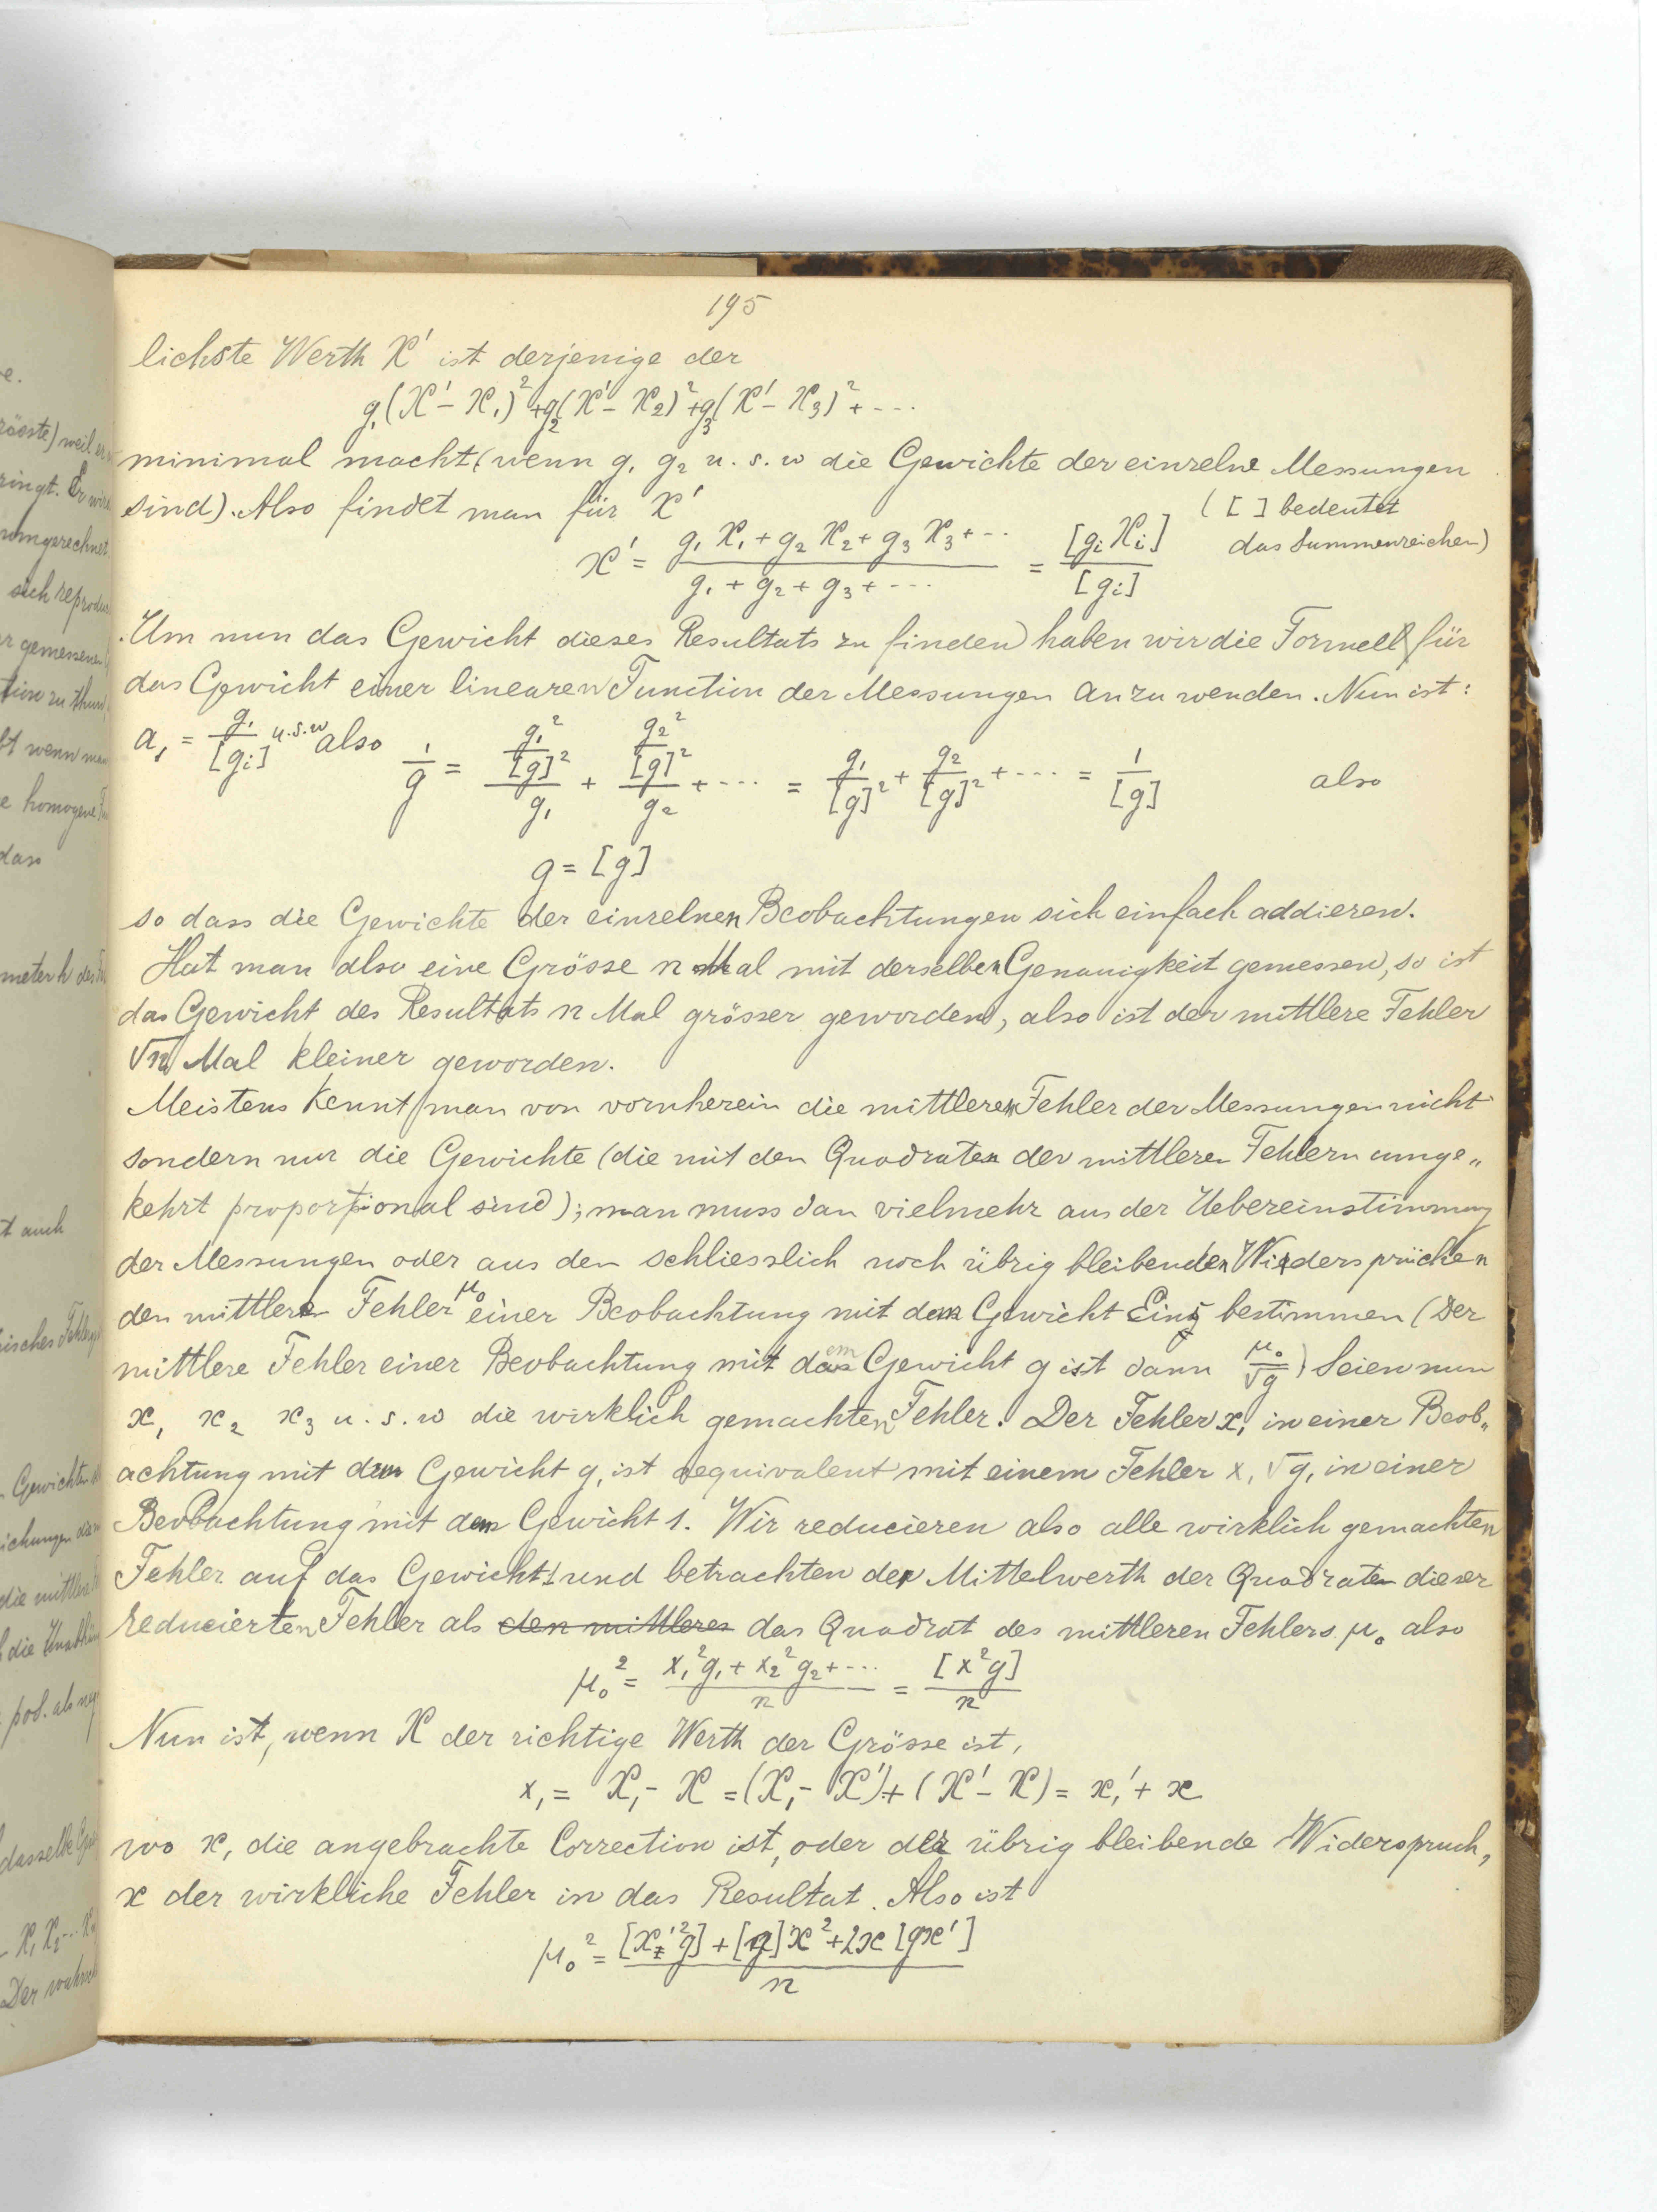 195
lichste Werth X' ist derjenige der
g₁(X'-X₁)²+g₂(X'-X₂)²+g₃(X'-X₃)²+---
minimal macht (wenn g₁ g₂ u.s.w die Gewichte der einzelne Messungen
sind). Also findet man für X'
([ ] bedeutet
das Summenzeichen)
X' = (g₁X₁+g₂X₂+g₃X₃+---)/(g₁+g₂+g₃+---) = [gᵢXᵢ]/[gᵢ]
Um nun das Gewicht dieses Resultats zu finden haben wir die Formell für
das Gewicht einer linearen Function der Messungen anzuwenden. Nun ist:
a₁ = g₁/[gᵢ] u.s.w also 1/g = (g₁²/[g]²)/g₁ + (g₂²/[g]²)/g₂ + ---- = g₁/[g]² + g₂/[g]² + ---- = 1/[g] also
g = [g]
so dass die Gewichte der einzelnen Beobachtungen sich einfach addieren.
Hat man also eine Grösse n Mal mit derselben Genauigkeit gemessen, so ist
das Gewicht des Resultats n Mal grösser geworden, also ist der mittlere Fehler
√n Mal kleiner geworden.
Meistens kennt man von vornherein die mittleren Fehler der Messungen nicht
sondern nur die Gewichte (die mit den Quadraten der mittleren Fehlern umge„
kehrt proportional sind); man muss dan vielmehr aus der Uebereinstimmung
der Messungen oder aus den schliesslich noch übrig bleibenden Wiedersprüchen
den mittlern Fehler μ₀ einer Beobachtung mit dem Gewicht Eins bestimmen (Der
mittlere Fehler einer Beobachtung mit dem Gewicht g ist dann μ₀/√g) Seien nun
x₁ x₂ x₃ u.s.w die wirklich gemachten Fehler. Der Fehler x₁ in einer Beob„
achtung mit dem Gewicht g₁ ist aequivalent mit einem Fehler x₁√g₁ in einer
Beobachtung mit dem Gewicht 1. Wir reducieren also alle wirklich gemachten
Fehler auf das Gewicht 1 und betrachten der Mittelwerth der Quadraten dieser
reducierten Fehler als den mittleren das Quadrat des mittleren Fehlers μ₀ also
μ₀² = (x₁²g₁+x₂²g₂+---)/n = [x²g]/n
Nun ist, wenn X der richtige Werth der Grösse ist,
x₁ = X₁-X = (X₁-X')+(X'-X) = x₁'+x
wo x, die angebrachte Correction ist, oder der übrig bleibende Widerspruch,
x der wirkliche Fehler in das Resultat. Also ist
μ₀² = ([x'²g]+[g]x²+2x[gx'])/n